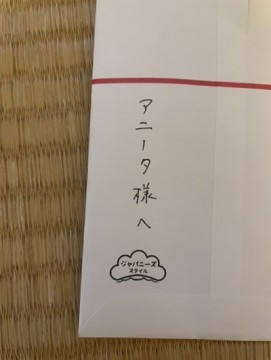 アニータ様へ
ジャパニーズ
スタイル